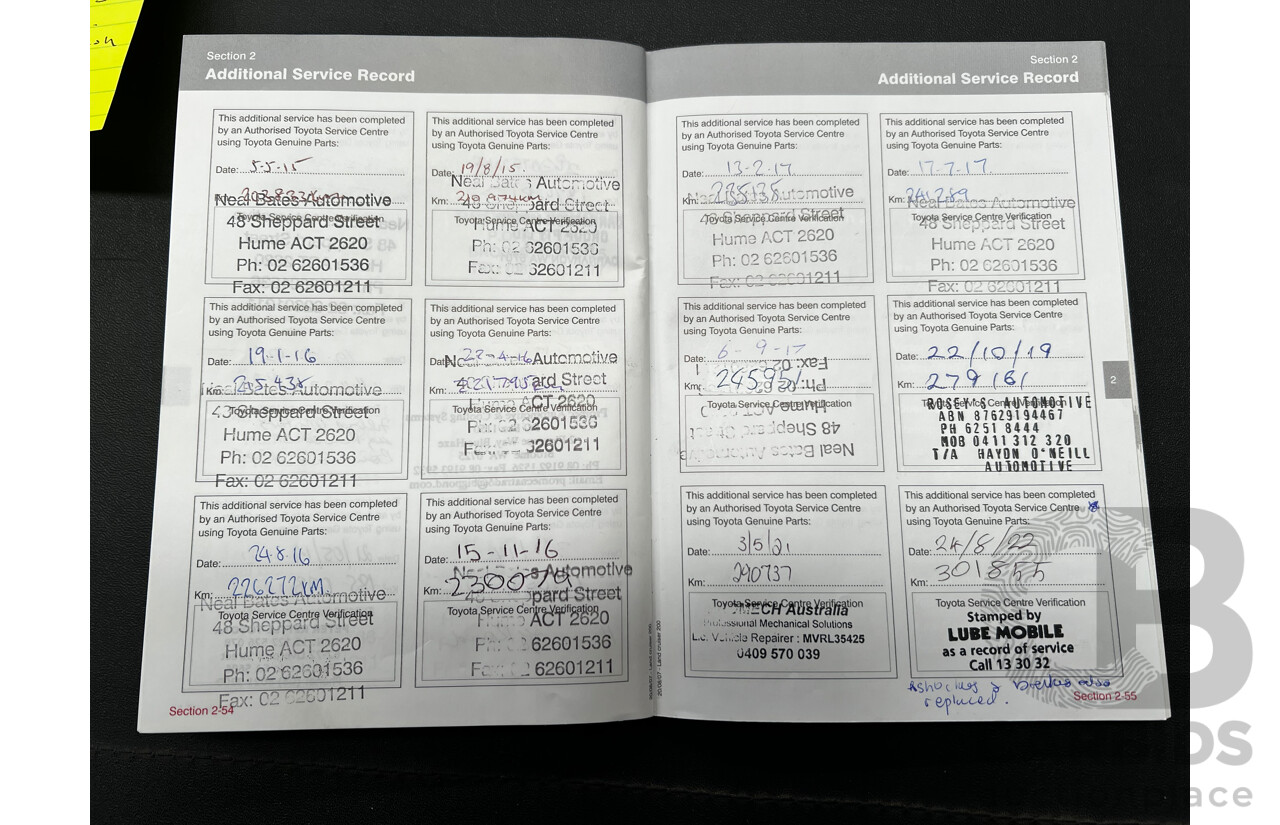 Section 2
Additional Service Record
This additional service has been completed
by an Authorised Toyota Service Centre
using Toyota Genuine Parts:
Date: 5-5-15
Neal Bates Automotive
Toyota Service Centre Verification
48 Sheppard Street
Hume ACT 2620
Ph: 02 62601536
Fax: 02 62601211
This additional service has been completed
by an Authorised Toyota Service Centre
using Toyota Genuine Parts:
Date: 19/8/15
Neal Bates Automotive
Km:
48 Sheppard Street
Toyota Service Centre Verification
Hume ACT 2620
Ph: 02 62601536
Fax: 02 62601211
This additional service has been completed
by an Authorised Toyota Service Centre
using Toyota Genuine Parts:
Date: 19-1-16
Km: 215435
Neal Bates Automotive
Toyota Service Centre Verification
48 Sheppard Street
Hume ACT 2620
Ph: 02 62601536
Fax: 02 62601211
This additional service has been completed
by an Authorised Toyota Service Centre
using Toyota Genuine Parts:
Date: 22-4-16
Automotive
Km:
Sheppard Street
Hume ACT 2620
Toyota Service Centre Verification
Ph: 02 62601536
Fax: 02 62601211
This additional service has been completed
by an Authorised Toyota Service Centre
using Toyota Genuine Parts:
Date: 24.8.16
Km: 226272KM
Neal Bates Automotive
Toyota Service Centre Verification
48 Sheppard Street
Hume ACT 2620
Ph: 02 62601536
Fax: 02 62601211
Section 2-54
This additional service has been completed
by an Authorised Toyota Service Centre
using Toyota Genuine Parts:
Date: 15-11-16
Neal Bates Automotive
Km: 230079
48 Sheppard Street
Toyota Service Centre Verification
Hume ACT 2620
Ph: 02 62601536
Fax: 02 62601211
Section 2
Additional Service Record
This additional service has been completed
by an Authorised Toyota Service Centre
using Toyota Genuine Parts:
Date: 13-2-17
Km: 235135
Neal Bates Automotive
Toyota Service Centre Verification
48 Sheppard Street
Hume ACT 2620
Ph: 02 62601536
Fax: 02 62601211
This additional service has been completed
by an Authorised Toyota Service Centre
using Toyota Genuine Parts:
Date: 17-7-17
Km: 241259
Neal Bates Automotive
Toyota Service Centre Verification
48 Sheppard Street
Hume ACT 2620
Ph: 02 62601536
Fax: 02 62601211
This additional service has been completed
by an Authorised Toyota Service Centre
using Toyota Genuine Parts:
Date: 6-9-17
Km:
Toyota Service Centre Verification
Hume ACT
48 Sheppard Street
Neal Bates Automotive
This additional service has been completed
by an Authorised Toyota Service Centre
using Toyota Genuine Parts:
Date: 22/10/19
Km: 279181
2
Toyota Service Centre Verification
ROSEY'S AUTOMOTIVE
ABN 87629194467
PH 6251 8444
MOB 0411 312 320
T/A HAYDN O'NEILL
AUTOMOTIVE
This additional service has been completed
by an Authorised Toyota Service Centre
using Toyota Genuine Parts:
Date: 3/5/21
Km: 290737
Toyota Service Centre Verification
MECH Australia
Professional Mechanical Solutions
Lic. Vehicle Repairer : MVRL35425
0409 570 039
This additional service has been completed
by an Authorised Toyota Service Centre
using Toyota Genuine Parts:
Date: 24/8/22
Km: 301855
Toyota Service Centre Verification
Stamped by
LUBE MOBILE
as a record of service
Call 13 30 32
replaced.
Section 2-55